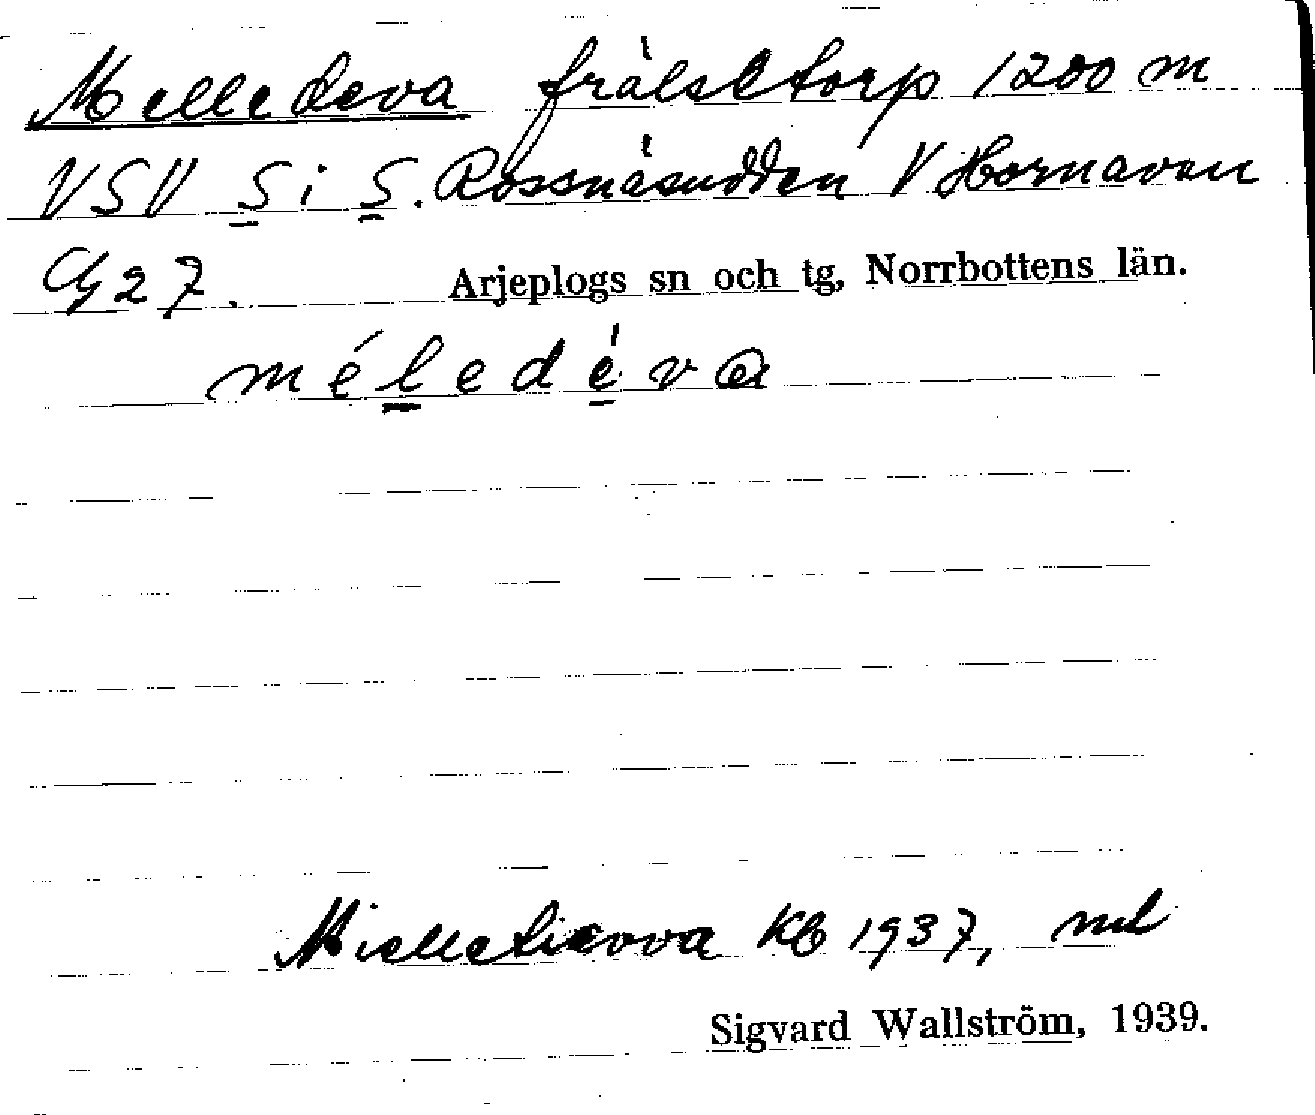 Melledeva frälsetorp 1200 m
VSV S i S. Rossnäsudden V Hornavan
G 27. Arjeplogs sn och tg, Norrbottens län.
méledéva
Mielletievva Kb 1937,
Sigvard Wallström, 1939.